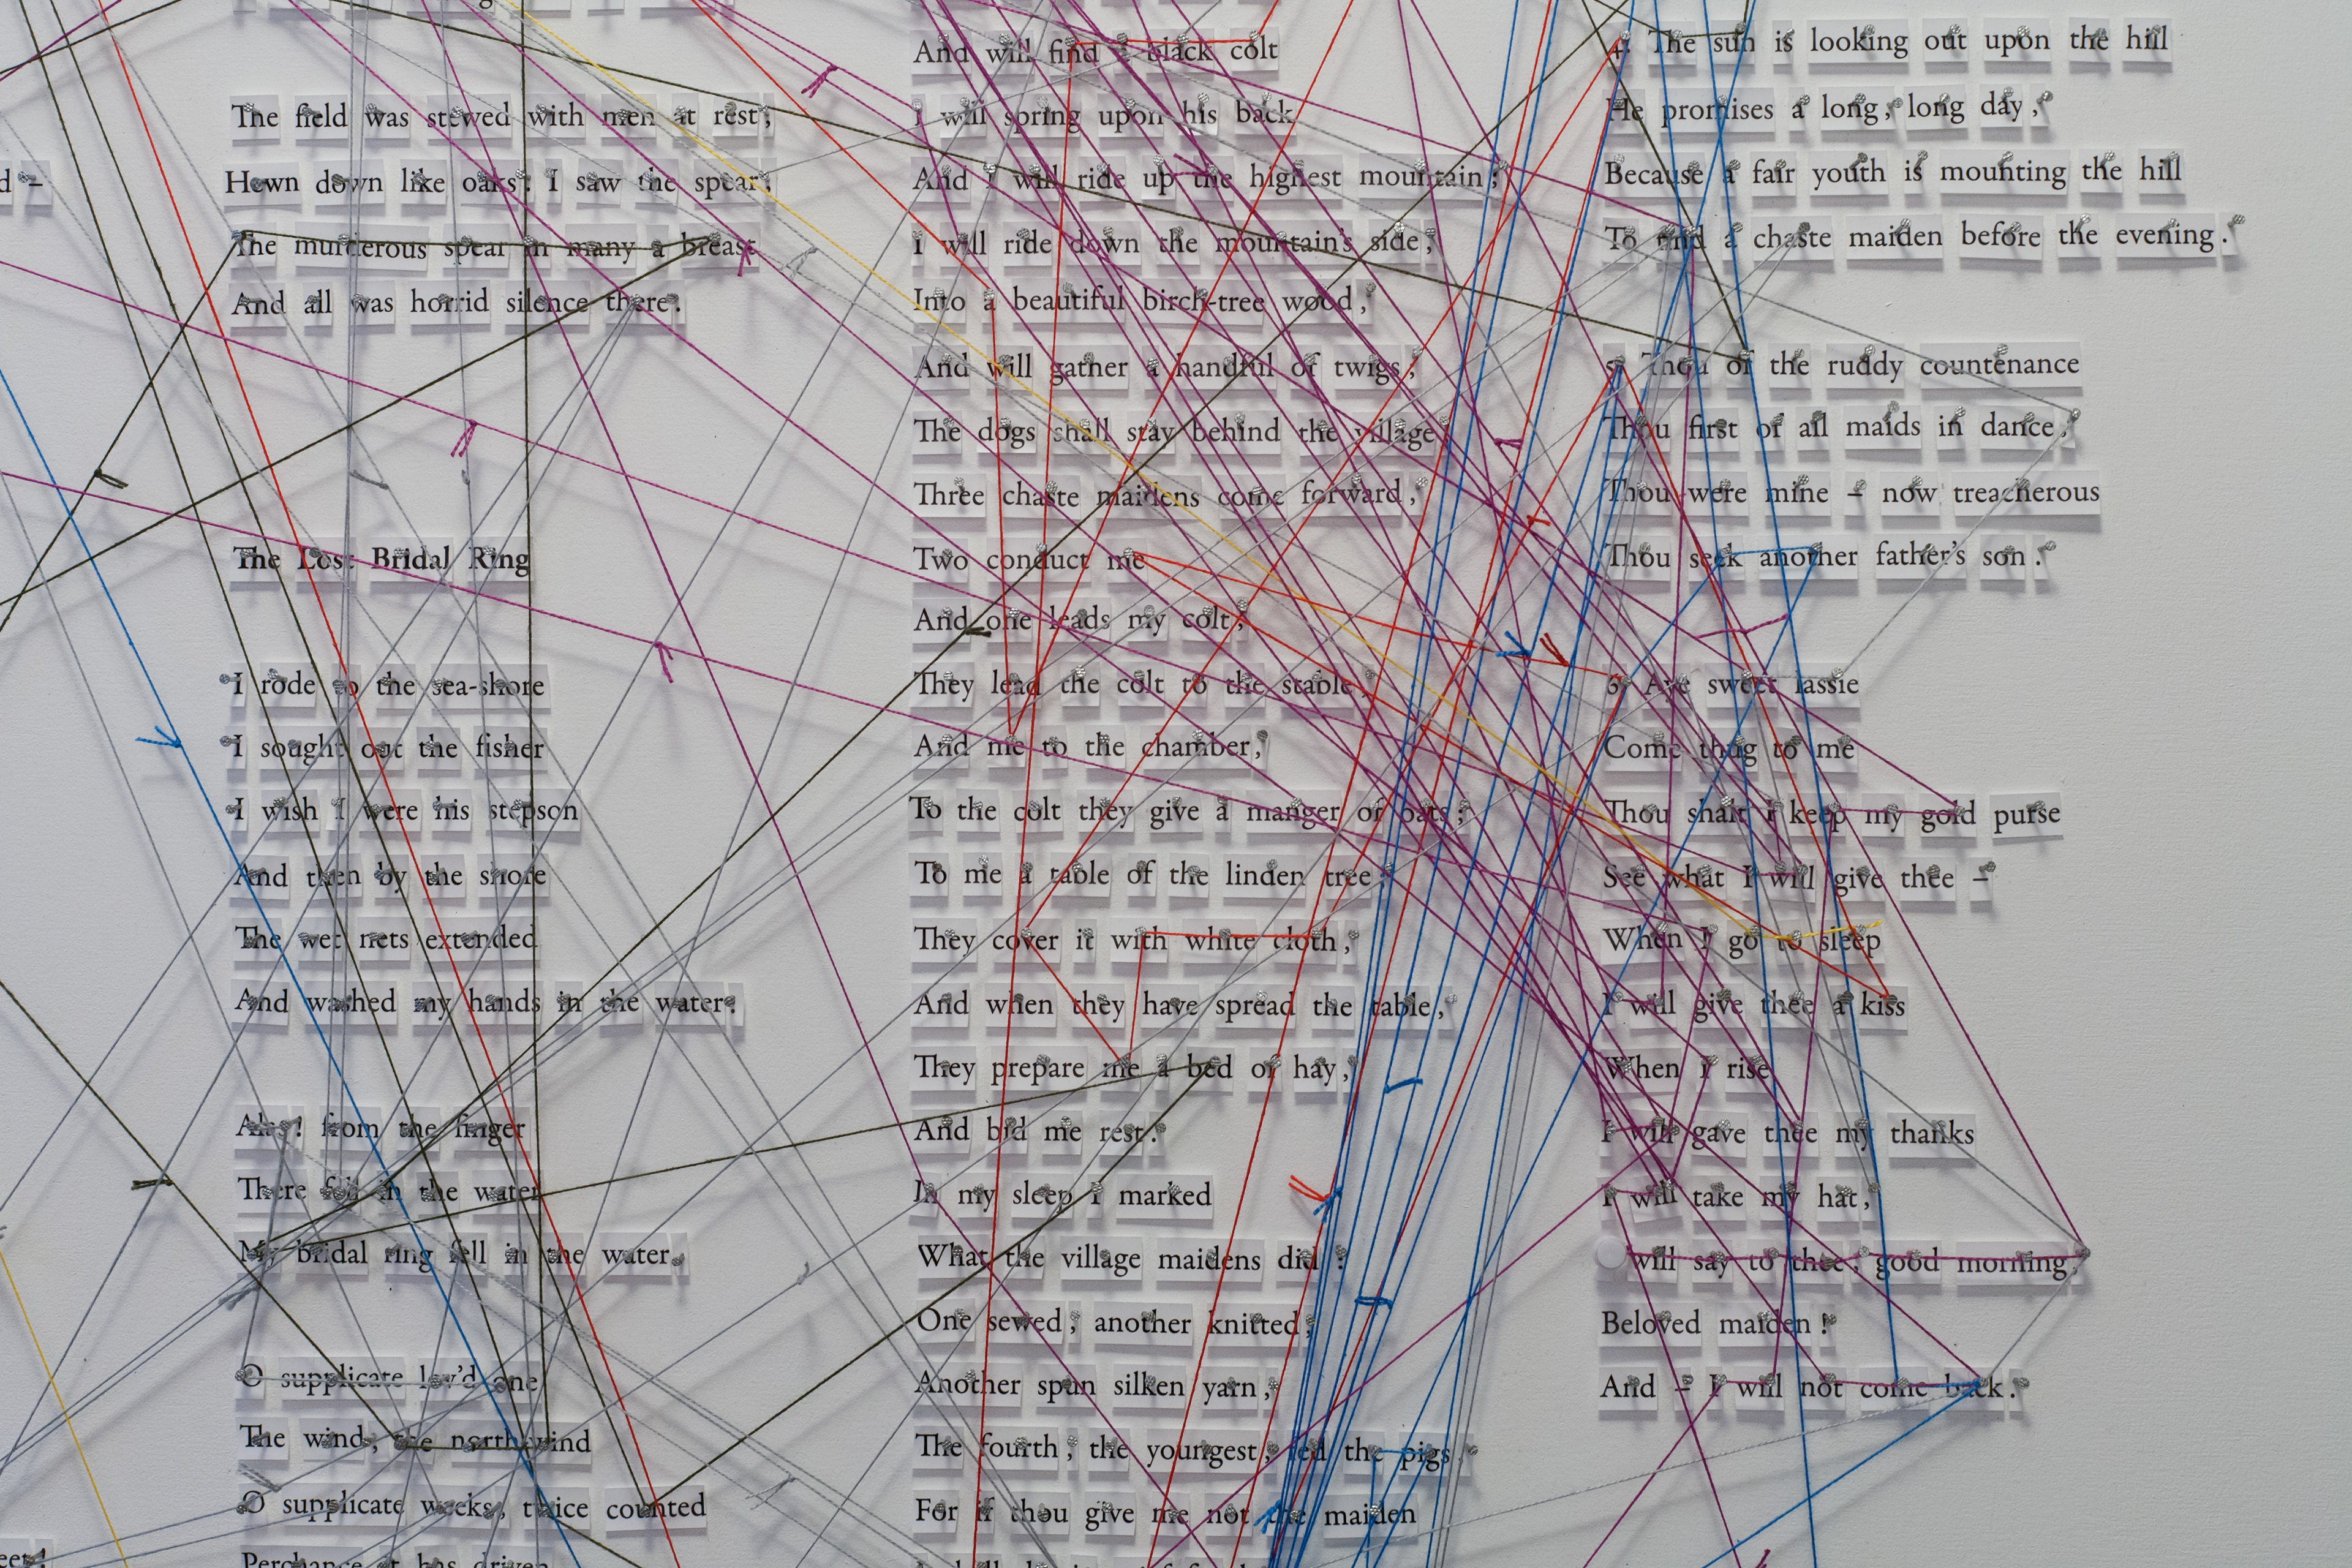 d –
The field was stewed with men at rest ;
Hewn down like oaks : I saw the spear ;
The murderous spear in many a breast
And all was horrid silence there .
The Lost Bridal Ring
I rode to the sea-shore
I sought out the fisher
I wish I were his stepson
And then by the shore
The wet nets extended
And washed my hands in the water .
Alas ! from the finger
There fell in the water
My bridal ring fell in the water .
O supplicate lov'd one
The wind , the north wind
O supplicate weeks , twice counted
Perchance it has driven
And will find a black colt
I will spring upon his back
And I will ride up the highest mountain ;
I will ride down the mountain's side ,
Into a beautiful birch-tree wood ,
And will gather a handful of twigs ,
The dogs shall stay behind the village
Three chaste maidens come forward ,
Two conduct me
And one leads my colt ,
They lead the colt to the stable ,
And me to the chamber ,
To the colt they give a manger of oats ;
To me a table of the linden tree ,
They cover it with white cloth ,
And when they have spread the table ,
They prepare me a bed of hay ,
And bid me rest .
In my sleep I marked
What the village maidens did ?
One sewed , another knitted ,
Another spun silken yarn ,
The fourth , the youngest , fed the pigs .
For if thou give me not the maiden
4. The sun is looking out upon the hill
He promises a long , long day ,
Because a fair youth is mounting the hill
To find a chaste maiden before the evening .
5. Thou of the ruddy countenance
Thou first of all maids in dance ,
Thou were mine – now treacherous
Thou seek another father's son .
6. Aye sweet lassie
Come thug to me
Thou shalt I keep my gold purse
See what I will give thee –
When I go to sleep
I will give thee a kiss
When I rise
I will gave thee my thanks
I will take my hat ,
will say to thee , good morning ,
Beloved maiden !
And – I will not come back .